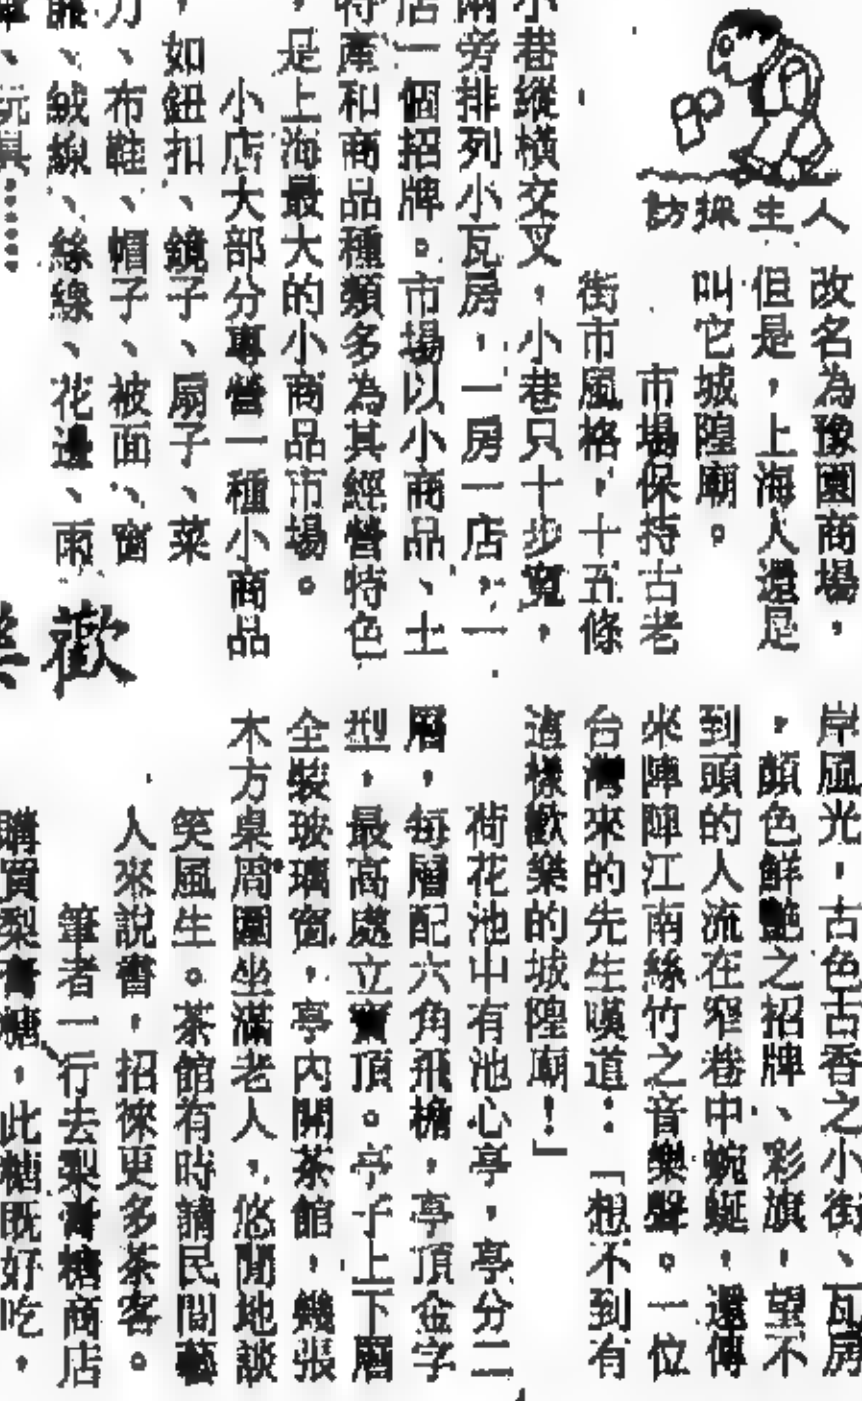 人生採訪
改名為豫園商場，
但是，上海人還是
叫它城隍廟。
市場保持古老
街市風格，十五條
小巷縱橫交叉，小巷只十步寬，
兩旁排列小瓦房，一房一店，一
店一個招牌。市場以小商品、土
特產和商品種類多為其經營特色
，是上海最大的小商品市場。
小店大部分專營一種小商品
，如鈕扣、鏡子、扇子、菜
刀、布鞋、帽子、被面、窗
、絨線、絲線、花邊、雨
、玩具……
歡
岸風光，古色古香之小街、瓦房
，顏色鮮艷之招牌、彩旗，望不
到頭的人流在窄巷中蜿蜒，還傳
來陣陣江南絲竹之音樂聲。一位
台灣來的先生嘆道：「想不到有
這樣歡樂的城隍廟！」
荷花池中有池心亭，亭分二
層，每層配六角飛檐，亭頂金字
型，最高處立寶頂。亭子上下層
全裝玻璃窗，亭內開茶館，幾張
木方桌周圍坐滿老人，悠閒地談
笑風生。茶館有時請民間藝
人來說書，招徠更多茶客。
筆者一行去梨膏糖商店
購買梨膏糖，此糖既好吃，